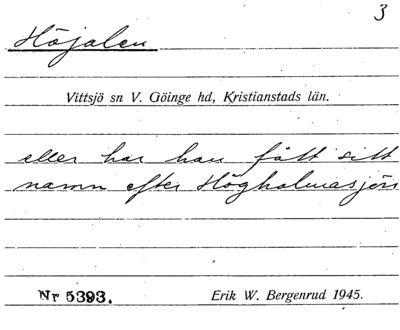 3
Höjalen
Vittsjö sn V. Göinge hd, Kristianstads län.
eller har han fått sitt
namn efter Högholmasjön
Nr 5393. Erik W. Bergenrud 1945.